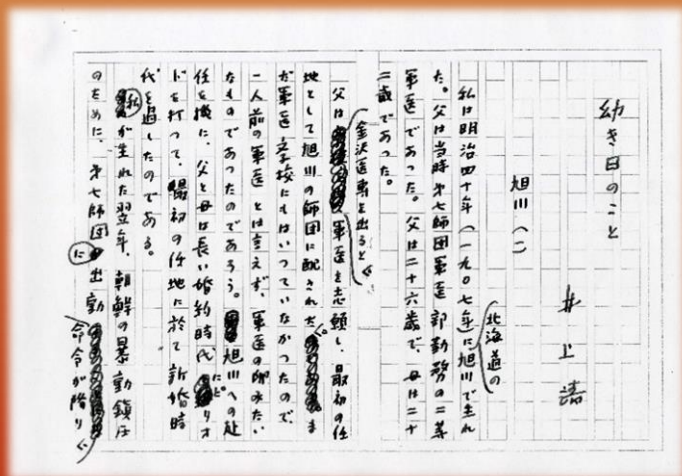 幼き日のこと
井上靖
旭川(一)
北海道の
私は明治四十年(一九〇七年)に旭川で生れ
た。父は当時第七師団軍医部勤務の二等
軍医であった。父は二十六歳で、母は二十
二歳であった。
金沢医専を出ると
父は軍医を志願し、最初の任
地として旭川の師団に配された。ま
だ軍医学校にもはいっていなかったので、
一人前の軍医とは言えず、軍医の卵みたい
なものであったのであろう。旭川への赴
任を機に、父と母は長い婚約時代にピリオ
ドを打って、最初の任地に於て新婚時
代を過したのである。
私が生れた翌年、朝鮮の暴動鎮圧
のために、第七師団に出動
命令が降り